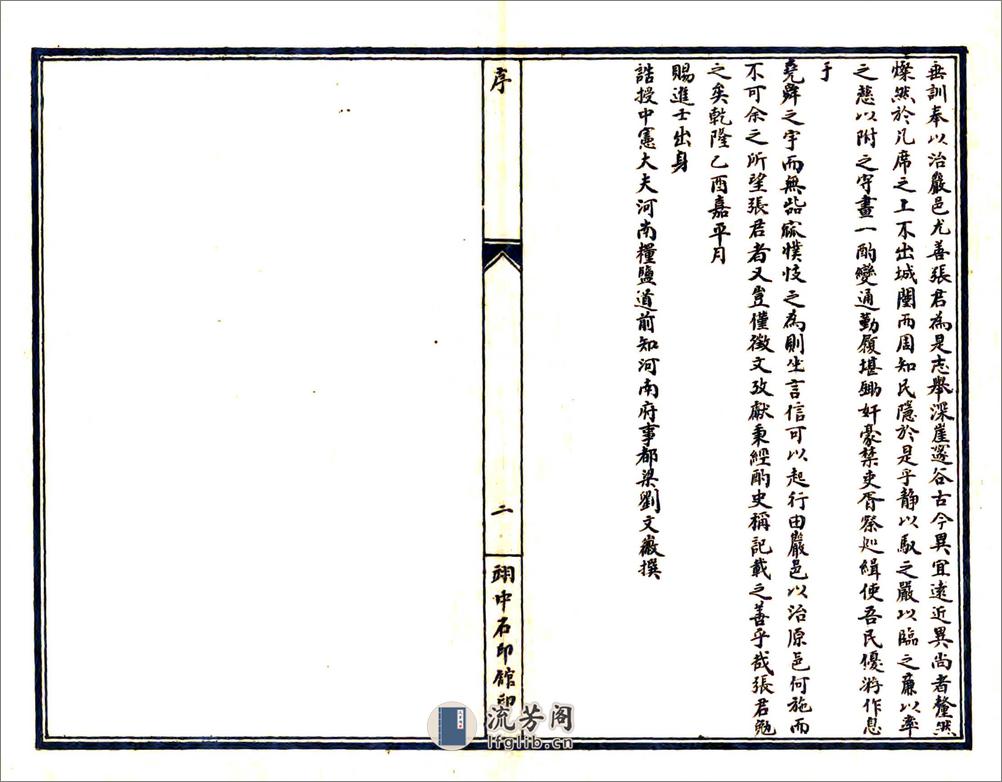 垂訓奉以治嚴邑尤善張君為是志舉深崖邃谷古今異宜遠近異尚者釐然
燦然於几席之上不出城闉而周知民隱於是乎靜以馭之嚴以臨之廉以率
之慈以附之守畫一酌變通勤履堪鋤奸豪禁吏胥察巡緝使吾民優游作息
于
堯舜之宇而無呰窳懻忮之為則坐言信可以起行由嚴邑以治原邑何施而
不可余之所望張君者又豈僅徵文攷獻秉經酌史稱記載之善乎哉張君勉
之矣乾隆乙酉嘉平月
賜進士出身
誥授中憲大夫河南糧鹽道前知河南府事都梁劉文徽撰
序
二
翊中石印館印
流芳阁
lfglib.cn